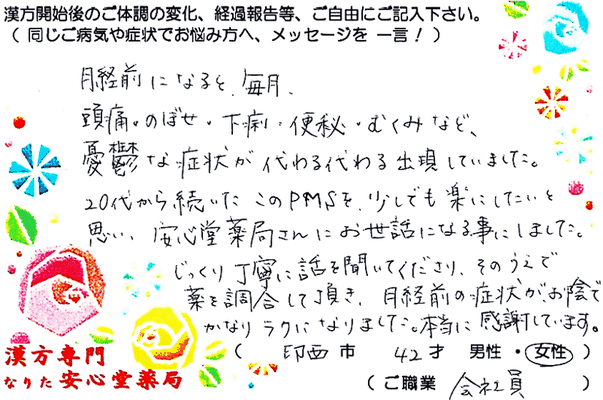 漢方開始後のご体調の変化、経過報告等、ご自由にご記入下さい。
（ 同じご病気や症状でお悩み方へ、メッセージを 一言！）
月経前になると、毎月、
頭痛・のぼせ・下痢・便秘・むくみなど、
憂鬱な症状が代わる代わる出現していました。
20代から続いたこのPMSを、少しでも楽にしたいと
思い、安心堂薬局さんにお世話になる事にしました。
じっくり丁寧に話を聞いてくださり、そのうえで
薬を調合して頂き、月経前の症状がお陰で
かなりラクになりました。本当に感謝しています。
（ 印西市 42才 男性・女性 ）
漢方専門
なりた 安心堂薬局
（ご職業 会社員 ）